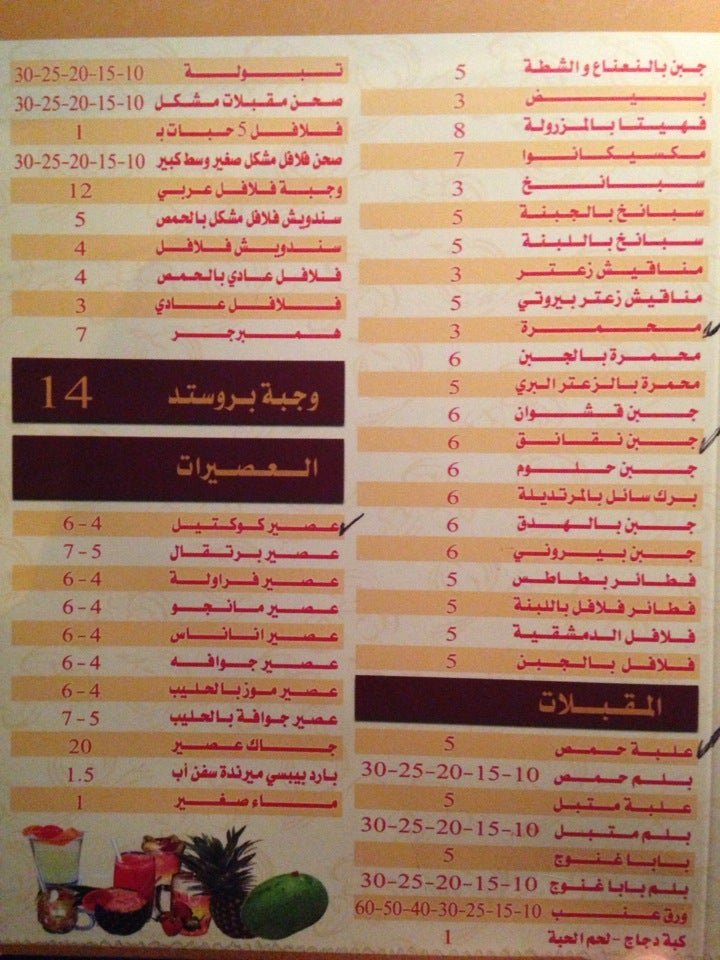 جبن بالنعناع و الشطة 5
بيض 3
فهيتا بالمزرولة 8
مكسيكانوا 7
سبانخ 3
سبانخ بالجبنة 5
سبانخ باللبنة 5
مناقيش زعتر 3
مناقيش زعتر بيروتي 5
محمرة 3
محمرة بالجبن 6
محمرة بالزعتر البري 5
جبن قشوان 6
جبن نقانق 6
جبن حلوم 6
برك سائل بالمرتديلة 6
جبن بالهدق 6
جبن بيروني 6
فطائر بطاطس 5
فطائر فلافل باللبنة 5
فلافل الدمشقية 5
فلافل بالجبن 5
المقبلات
علبة حمص 5
بلم حمص 10-15-20-25-30
علبة متبل 5
بلم متبل 10-15-20-25-30
بابا غنوج 5
بلم بابا غنوج 10-15-20-25-30
ورق عنب 10-15-25-30-40-50-60
كبة دجاج - لحم الحبة 1
تبولة 10-15-20-25-30
صحن مقبلات مشكل 10-15-20-25-30
فلافل 5 حبات بـ 1
صحن فلافل مشكل صغير وسط كبير 10-15-20-25-30
وجبة فلافل عربي 12
سندويش فلافل مشكل بالحمص 5
سندويش فلافل 4
فلافل عادي بالحمص 4
فلافل عادي 3
همبرجر 7
وجبة بروستد 14
العصيرات
عصير كوكتيل 4 - 6
عصير برتقال 5 - 7
عصير فراولة 4 - 6
عصير مانجو 4 - 6
عصير اناناس 4 - 6
عصير جوافه 4 - 6
عصير موز بالحليب 4 - 6
عصير جوافة بالحليب 5 - 7
جاك عصير 20
بارد بيبسي ميرندة سفن أب 1.5
ماء صغير 1